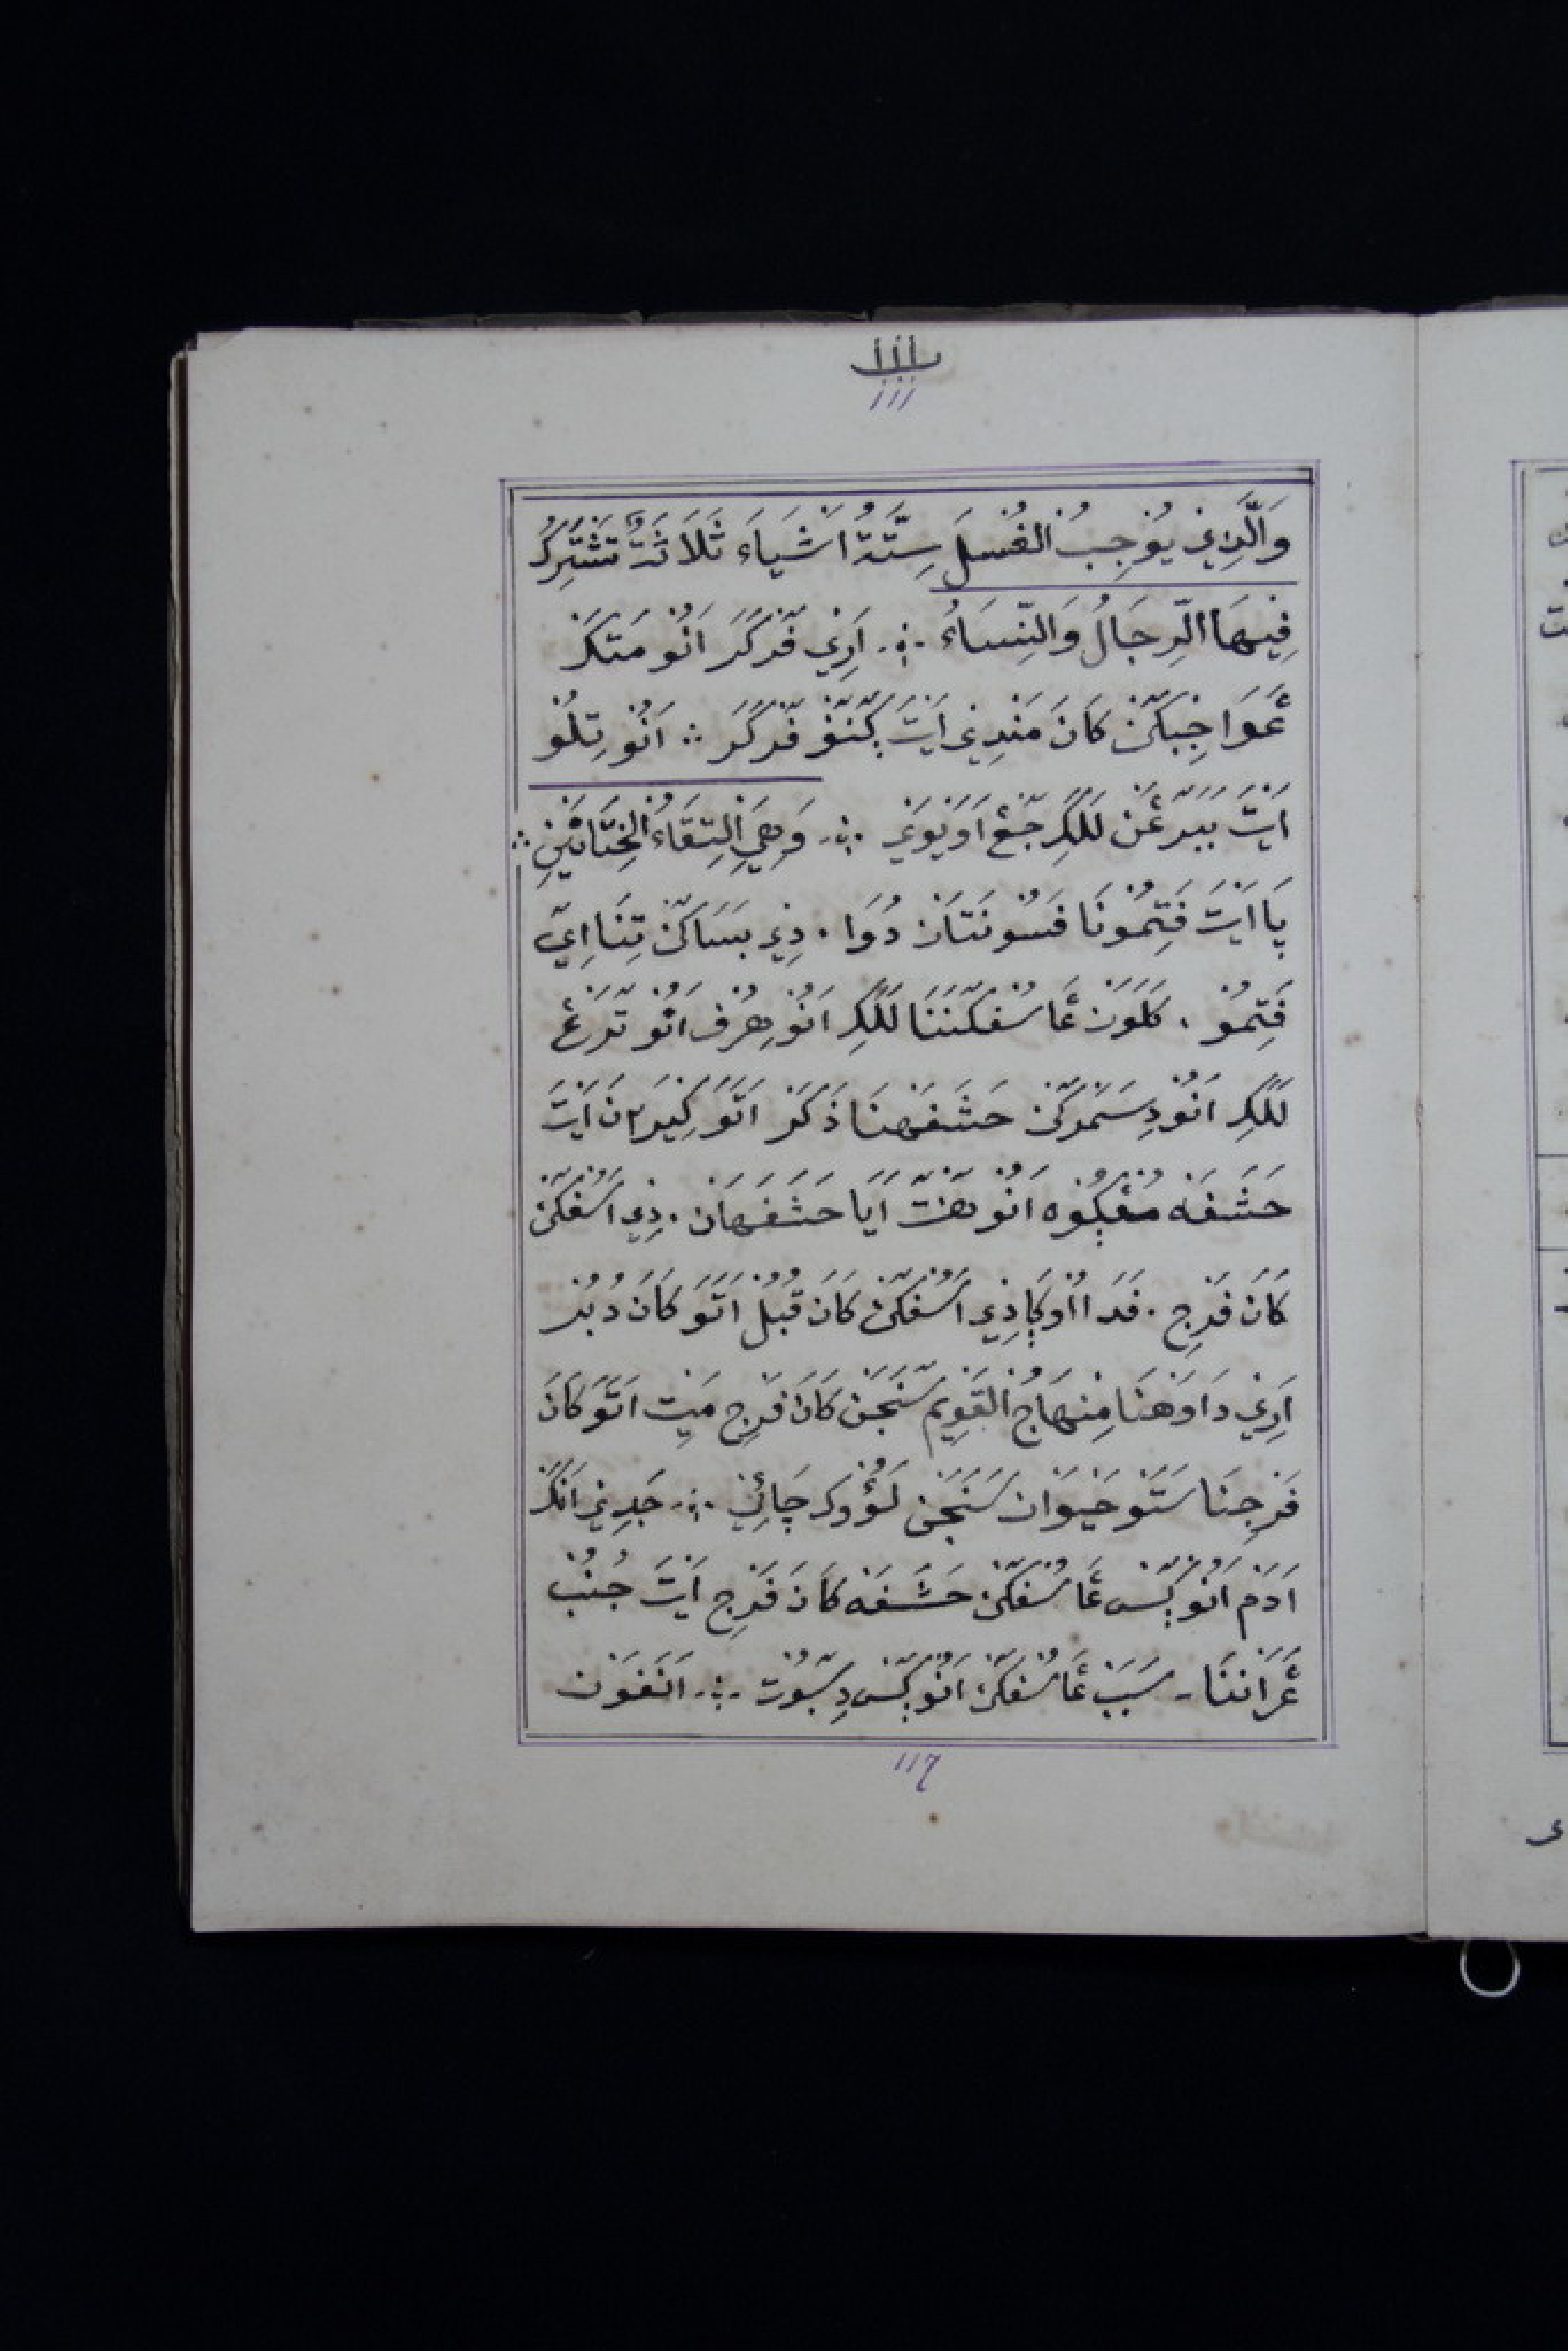 ااا
١١١
وَالَّذِيْ يُوْجِبُ الغُسْلَ سِتَّةُ اَشْيَاءَ ثَلَاثَةٌ تَشْتَرِكُ
فِيهَا الرِّجَالُ وَالنِّسَاءُ ؞ اَرِيْ فَرْكَرَ اَنُو مَتَكَرْ
عَوَاجِبَكَنْ كَانَ مَنْدِيْ اَيْتَ كَنَنْ فَرْكَرَ ؞ اَنُو تِلُو
اَيْتَ بَيْرَعَنْ لَلَكِ جَعْ اَوَيَوَيْ ؞ وَهِيَ اِلْتِقَاءُ الْخِتَانَيْنِ ؞
يَا اَيْتَ فَتِمُونَا فَسُونَتَانْ دُوَا . دِيْ بَسَاكَنْ تِنَا اِيَ
فَتِمُوْ . كَلَوَنْ عَاسُفْكَنَنَا لَلَكِ اَنُو هِرُفْ اَنُو تَرَعْ
لَلَكِ اَنُو دِسَمَرَكَنْ حَشَفَهْنَا ذَكَرْ اَتَوَ كِيَرَ٢نْ اَيْتَ
حَشَفَهْ مُڠْكُوْه اَنُو هَنْتَ اَيَا حَشَفَهَانْ . دِيْ اَسُفْكَنْ
كَانَ فَرْجِ . فَدَ اُوْكَا دِيْ اَسُفْكَنْ كَانَ قُبُلْ اَتَوَ كَانَ دُبُرْ
اَرِيْ دَاوَهْنَا مِنْهَاجُ الْقَوِيمْ سَنَجَنْ كَانَ فَرْجِ مَيِتْ اَتَوَ كَانَ
فَرْجِنَا سَتَوْ حَيَوَانْ سَنَجَنْ لَؤُوكْ چَائِيْ ؞ جَدِيْ اَنْكَرْ
اَدَمْ اَنُو كَسْ عَاسُفْكَنْ حَشَفَهْ كَانَ فَرْجِ اَيْتَ جُنُبْ
عَرَانْنَا - سَبَبْ عَاسُفْكَنْ اَنُو كَسْ دِسَبُوتْ ؞ اَنَفَوَنْ
117